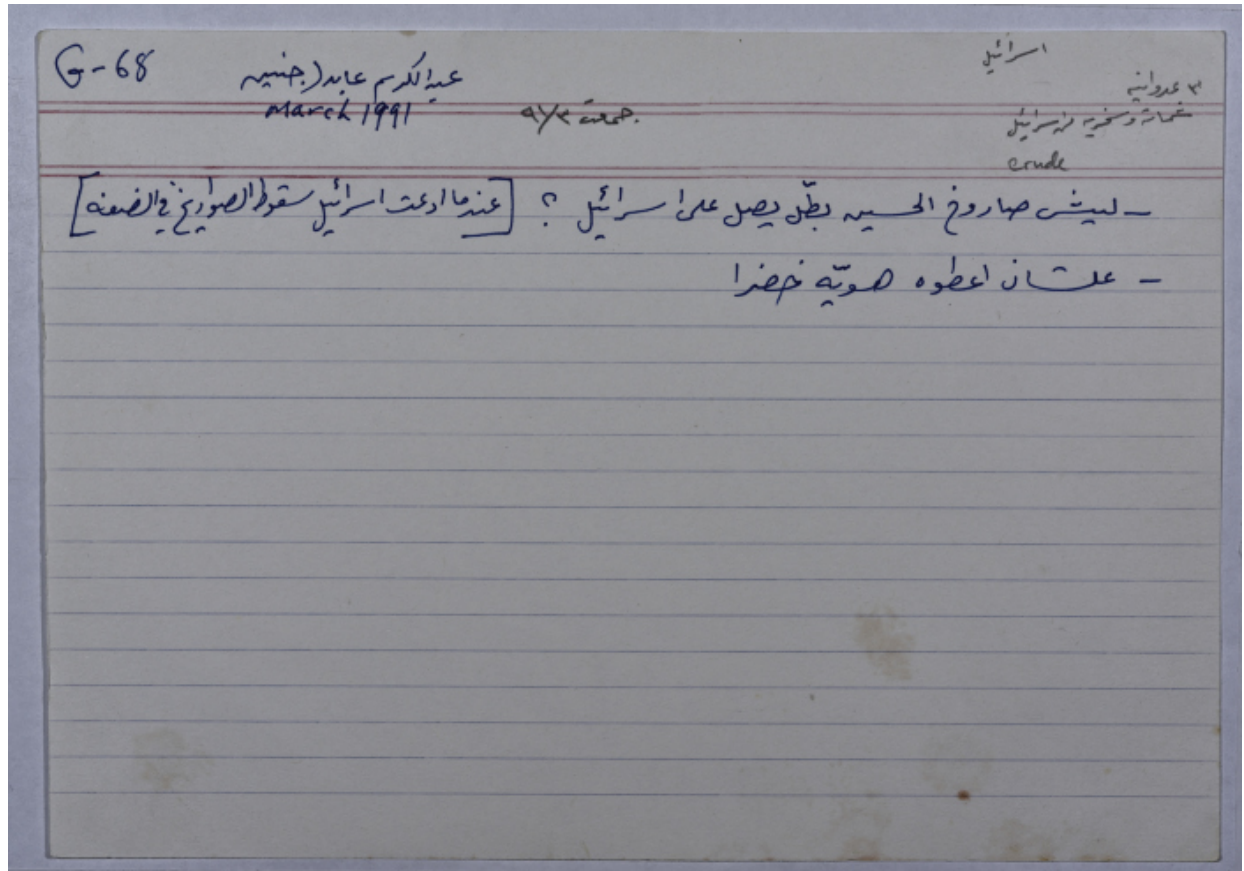 G-68
عبد الكريم عابد (جنين)
March 1991
جمعت ٩١/٣
اسرائيل
٣ عدوانيه
شماتة وسخرية من اسرائيل
crude
- ليش صاروخ الحسين بطّل يصل على اسرائيل ؟ [عندما ادعت اسرائيل سقوط الصواريخ في الضفه]
- علشان اعطوه هويّه خضرا